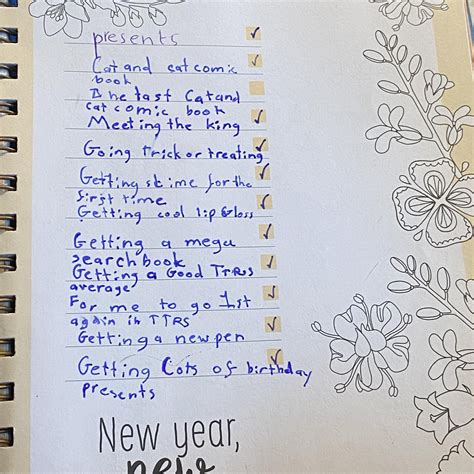 presents
Cat and cat comic
book
the last Cat and
cat comic book
Meeting the king
Going trick or treating
Getting slime for the
first time
Getting cool lip Gloss
Getting a mega
search book
Getting a Good TTRS
average
For me to go 1st
again in TTRS
Getting a new pen
Getting Lots of birthday
presents
New year,
new